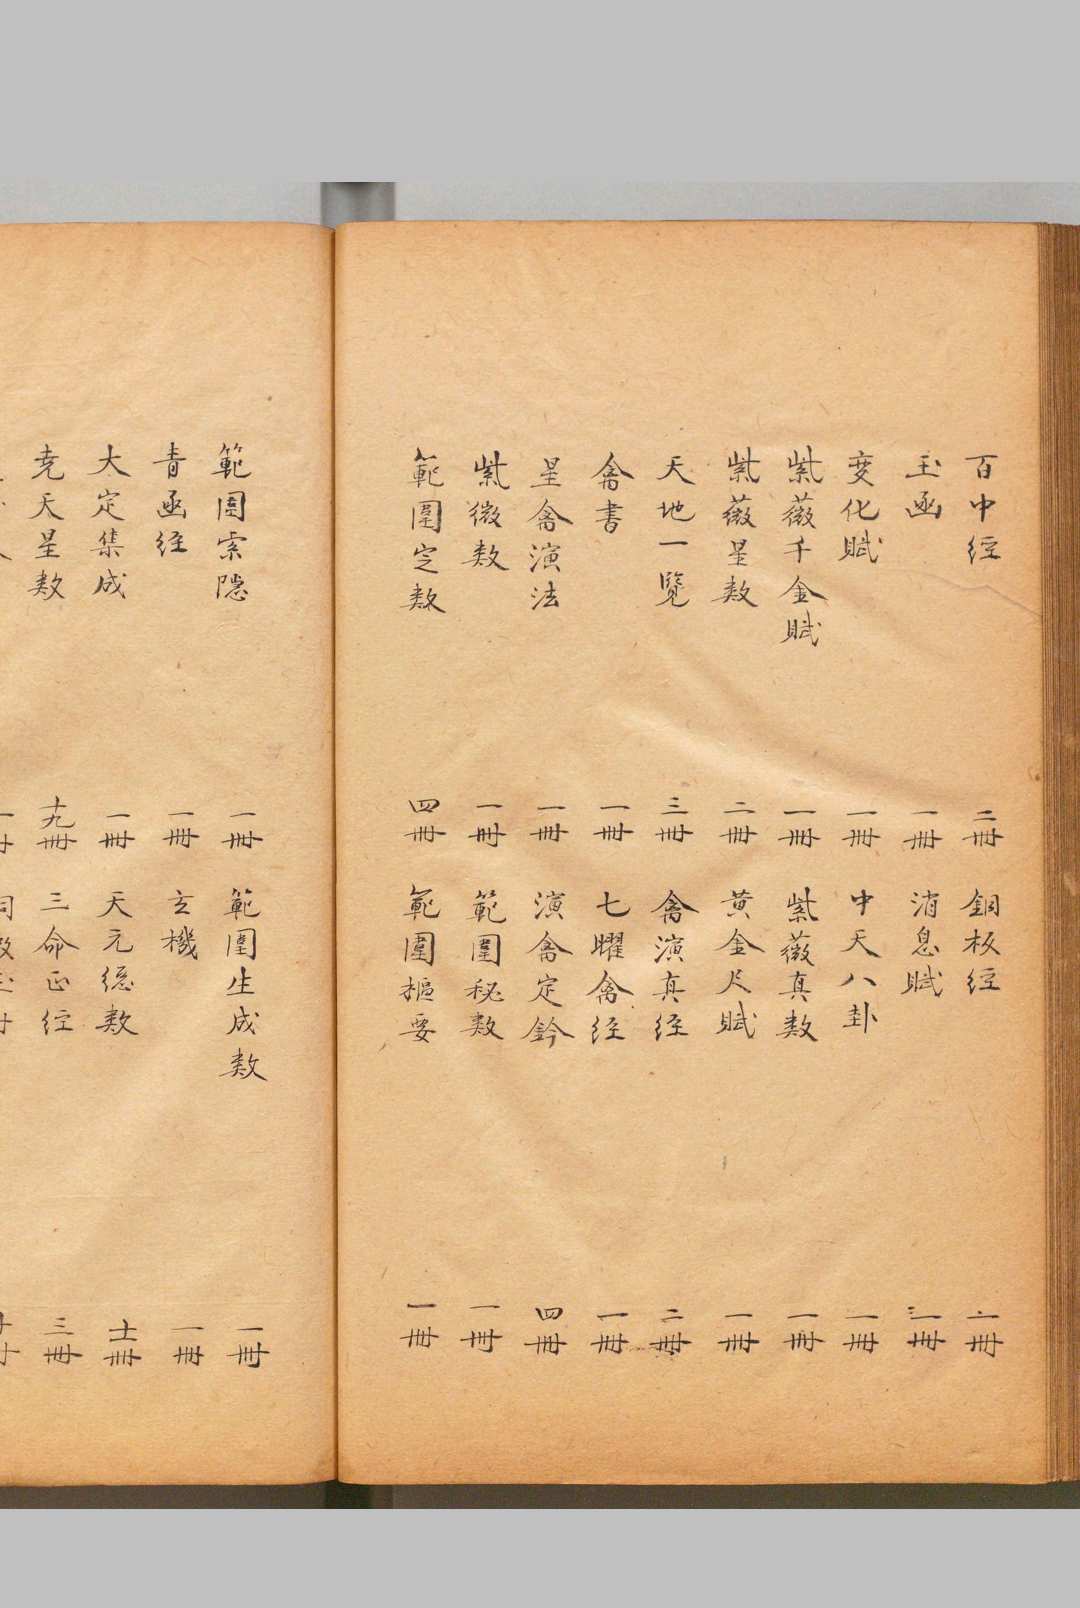 百中経 二冊 銅板経 一冊
玉函 一冊 消息賦 一冊
変化賦 一冊 中天八卦 一冊
紫薇千金賦 一冊 紫薇真数 一冊
紫薇星数 二冊 黄金尺賦 一冊
天地一覧 三冊 禽演真経 二冊
禽書 一冊 七曜禽経 一冊
星禽演法 一冊 演禽定鈐 四冊
紫微数 一冊 範囲秘数 一冊
範囲定数 四冊 範囲樞要 一冊
範囲索隠 一冊 範囲生成数 一冊
青函経 一冊 玄機 一冊
大定集成 一冊 天元総数 十一冊
尭天星数 十九冊 三命正経 三冊